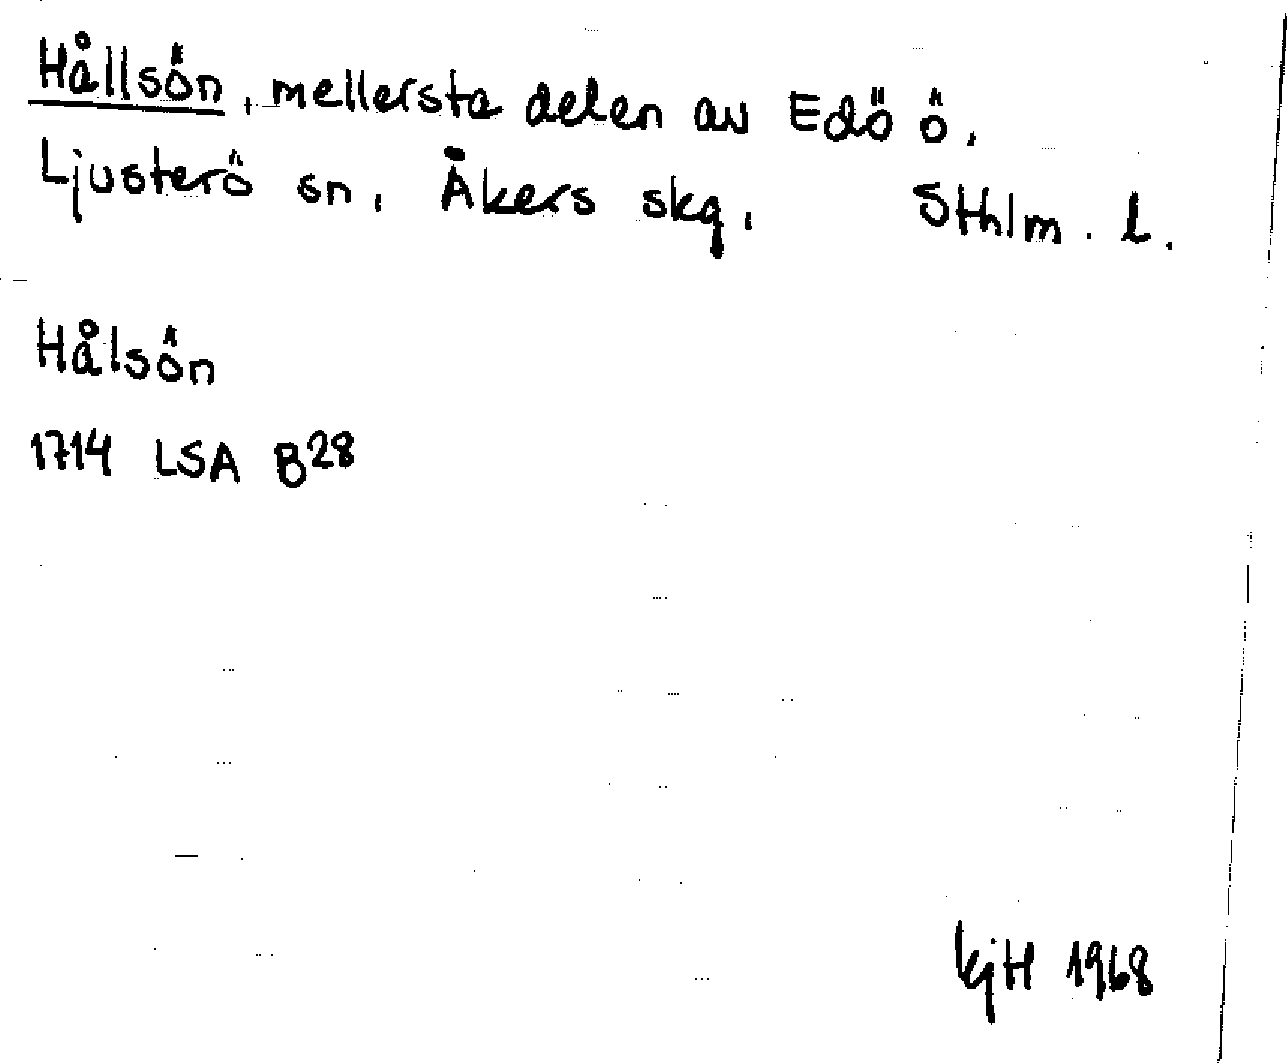 Hållsön, mellersta delen av Edö ö.
Ljusterö sn, Åkers skg, Sthlm. l.
Hålsön
1714 LSA B28
kjH 1968